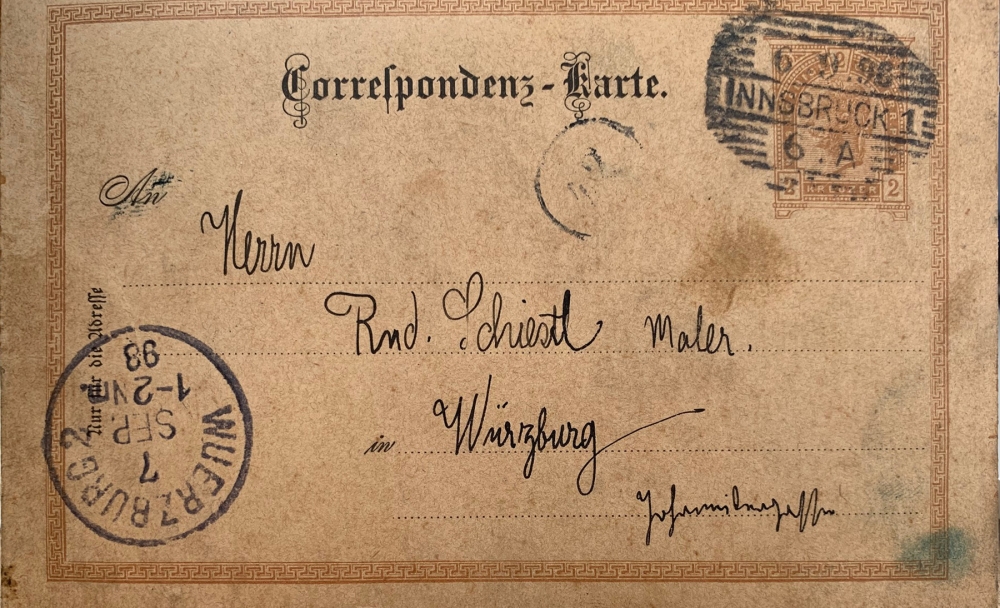 Correspondenz-Karte.
INNSBRUCK 1
6 . A
2 KREUZER 2
An
Herrn
Rud. Schiestl Maler.
Nur für die Adresse
in Würzburg
Johannitergasse
WUERZBURG 2
7
SEP.
1-2 NM
98